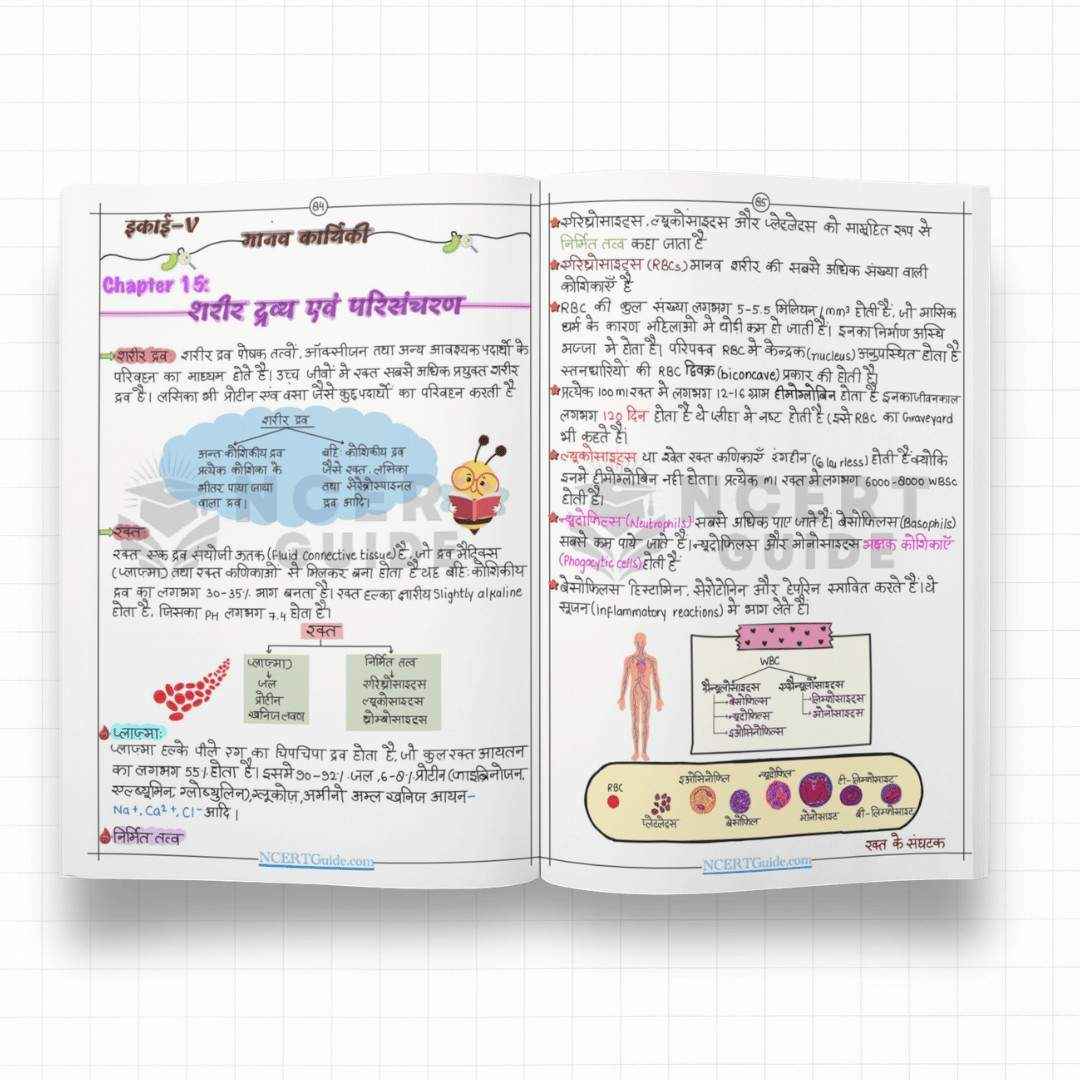 84
इकाई-V
मानव कार्यिकी
Chapter 15:
शरीर द्रव्य एवं परिसंचरण
शरीर द्रव शरीर द्रव पोषक तत्वों, ऑक्सीजन तथा अन्य आवश्यक पदार्थों के
परिवहन का माध्यम होते हैं। उच्च जीवों में रक्त सबसे अधिक प्रयुक्त शरीर
द्रव है। लसिका भी प्रोटीन एवं वसा जैसे कुछ पदार्थों का परिवहन करती है
शरीर द्रव
अन्त कोशिकीय द्रव
प्रत्येक कोशिका के
भीतर पाया जाया
वाला द्रव।
बहि कोशिकीय द्रव
जैसे रक्त, लसिका
तथा सेरेब्रोस्पाइनल
द्रव आदि।
रक्त
रक्त एक द्रव संयोजी ऊतक (Fluid connective tissue) है, जो द्रव मैट्रिक्स
(प्लाज्मा) तथा रक्त कणिकाओं से मिलकर बना होता है यह बहि:कोशिकीय
द्रव का लगभग 30-35% भाग बनता है। रक्त हल्का क्षारीय Slightly alkaline
होता है, जिसका PH लगभग 7.4 होता है।
रक्त
प्लाज्मा
जल
प्रोटीन
खनिज लवण
निर्मित तत्व
एरिथ्रोसाइट्स
ल्यूकोसाइट्स
थ्रोम्बोसाइट्स
प्लाज्मा:
प्लाज्मा हल्के पीले रंग का चिपचिपा द्रव होता है, जो कुल रक्त आयतन
का लगभग 55% होता है। इसमें 90-92% जल, 6-8% प्रोटीन (फाइब्रिनोजन,
एल्ब्यूमिन, ग्लोब्युलिन), ग्लूकोज, अमीनो अम्ल खनिज आयन-
Na+, Ca2+, Cl- आदि।
निर्मित तत्व
NCERTGuide.com
85
एरिथ्रोसाइट्स, ल्यूकोसाइट्स और प्लेटलेट्स को सामूहित रूप से
निर्मित तत्व कहा जाता है
एरिथ्रोसाइट्स (RBCs) मानव शरीर की सबसे अधिक संख्या वाली
कोशिकाएँ हैं
RBC की कुल संख्या लगभग 5-5.5 मिलियन/mm³ होती हैं, जो मासिक
धर्म के कारण महिलाओं में थोडी कम हो जाती हैं। इनका निर्माण अस्थि
मज्जा में होता है। परिपक्व RBC में केन्द्रक (nucleus) अनुपस्थित होता है
स्तनधारियों की RBC द्विवक्र (biconcave) प्रकार की होती है।
प्रत्येक 100 ml रक्त में लगभग 12-16 ग्राम हीमोग्लोबिन होता है इनका जीवनकाल
लगभग 120 दिन होता है ये प्लीहा में नष्ट होती है (इसे RBC का Graveyard
भी कहते हैं।
ल्यूकोसाइट्स या श्वेत रक्त कणिकाएँ रंगहीन (Colourless) होती हैं क्योकि
इनमें हीमोग्लोबिन नही होता। प्रत्येक ml रक्त में लगभग 6000-8000 WBSc
होती हैं।
न्यूट्रोफिल्स (Neutrophils) सबसे अधिक पाए जाते हैं। बेसोफिलस (Basophils)
सबसे कम पाये जाते हैं। न्यूट्रोफिलस और मोनोसाइट्स भक्षक कोशिकाएँ
(Phogocytic cells) होती हैं
बेसोफिलस हिस्टामिन, सेरोटोनिन और हेपरिन स्त्रावित करते हैं। ये
सूजन (inflammatory reactions) में भाग लेते हैं।
WBC
ग्रैन्यूलोसाइट्स
बेसोफिल्स
न्यूट्रोफिल्स
इओसिनोफिल्स
एग्रैन्यूलोसाइट्स
लिम्फोसाइट्स
मोनोसाइट्स
RBC
प्लेटलेट्स
इओसिनोफिल
बेसोफिल
न्यूट्रोफिल
मोनोसाइट
टी-लिम्फोसाइट
बी-लिम्फोसाइट
रक्त के संघटक
NCERTGuide.com
NCERT
GUIDE
NCERT
GUIDE